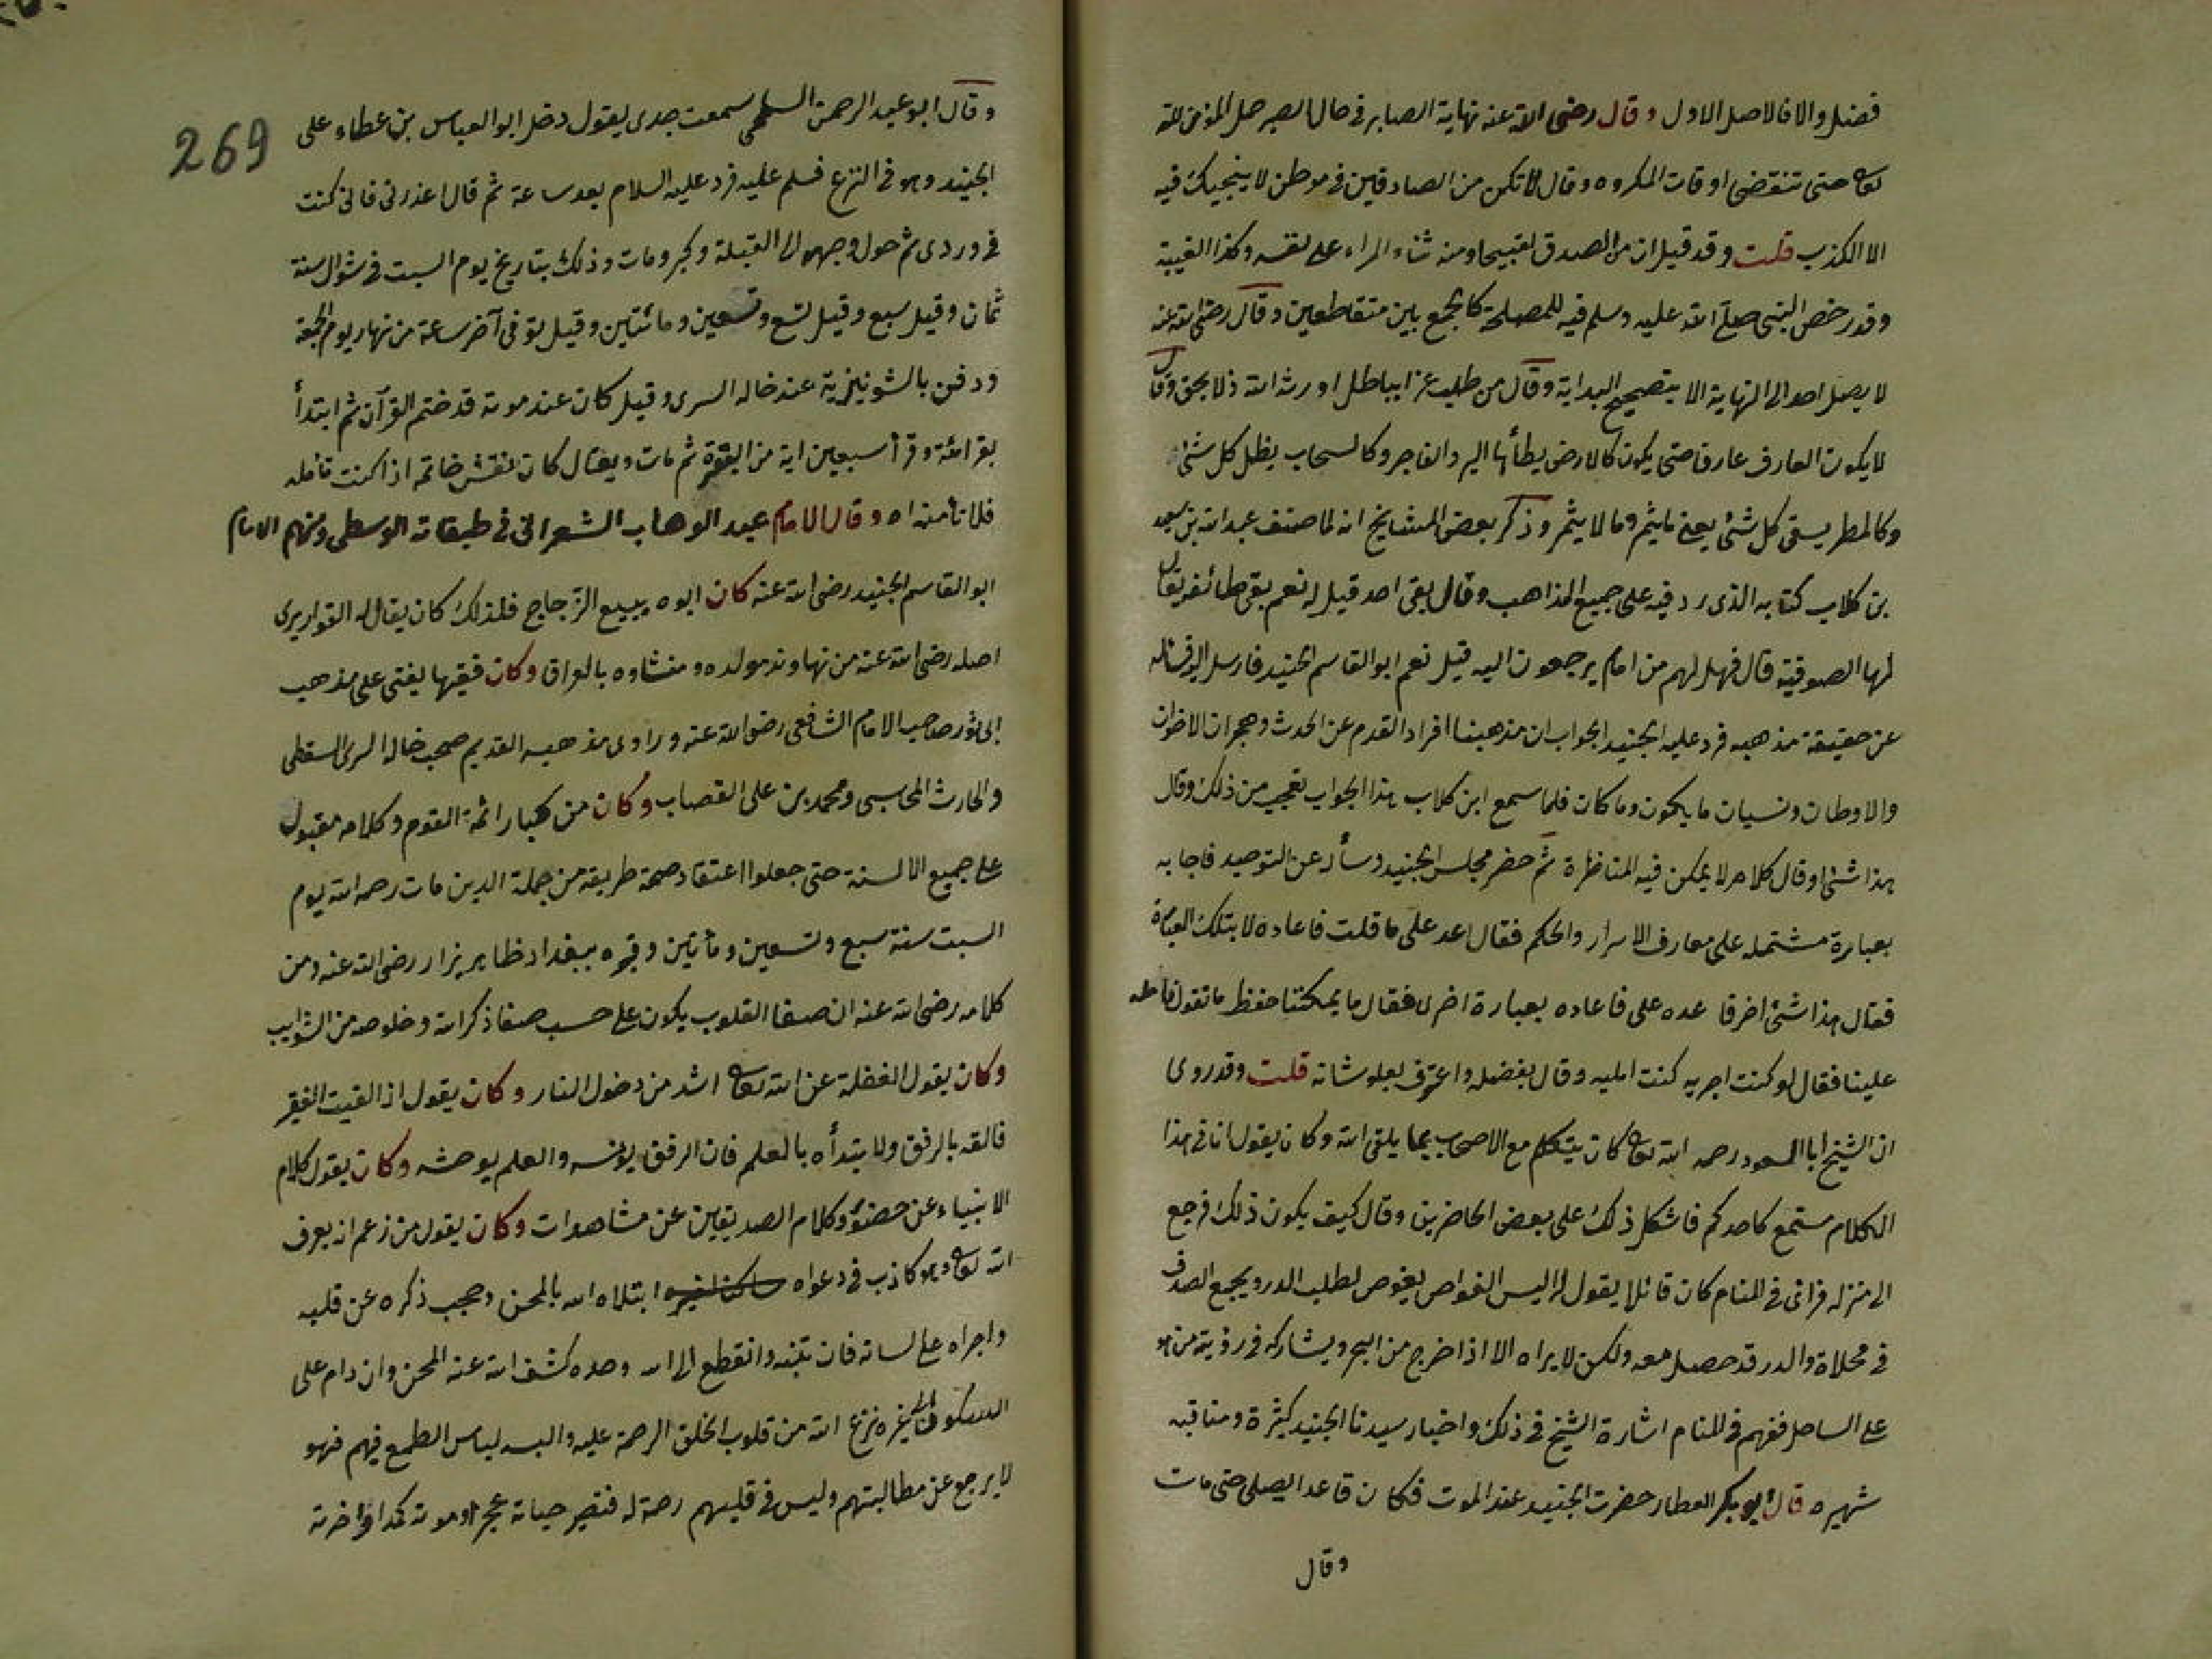 فضل والا فالاصل الاول وقال رضى الله عنه نهاية الصابر فى حال الصبر حمل المؤن لله
تعالى حتى تنقضى اوقات المكروه وقال لا تكن من الصادقين فى موطن لا ينجيك فيه
الا الكذب قلت وقد قيل ان من الصدق لقبيحا ومنه ثناء المراء على نفسه وكذا الغيبة
وقد رخص النبى صلى الله عليه وسلم فيه للمصلحة كالجمع بين متقاطعين وقال رضى الله عنه
لا يصل احد الى النهاية الا بتصحيح البداية وقال من طلب عزا بباطل اورثه الله ذلا بحق وقال
لا يكون العارف عارفا حتى يكون كالارض يطأها البر والفاجر وكالسحاب يظل كل شئ
وكالمطر يسقى كل شئ يعنى ما يثمر وما لا يثمر وذكر بعض المشايخ انه لما صنف عبد الله بن سعيد
بن كلاب كتابه الذى رد فيه على جميع المذاهب وقال بقى احد قيل له نعم بقى طائفة يقال
لها الصوفية قال فهل لهم من امام يرجعون اليه قيل نعم ابو القاسم الجنيد فارسل اليه فسأله
عن حقيقة مذهبه فرد عليه الجنيد الجواب ان مذهبنا افراد القدم عن الحدث وهجران الاخوان
والاوطان ونسيان ما يكون وما كان فلما سمع ابن كلاب هذا الجواب تعجب من ذلك وقال
هذا شئ او قال كلام لا يمكن فيه المناظرة ثم حضر مجلس الجنيد وسأله عن التوحيد فاجابه
بعبارة مشتمله على معارف الاسرار والحكم فقال اعد على ما قلت فاعاده لا بتلك العبارة
فقال هذا شئ اخر فا عده على فاعاده بعبارة اخرى فقال ما يمكننا حفظ ما تقول فامله
علينا فقال لو كنت اجريه كنت امليه وقال بفضله واعترف بعلو شانه قلت وقد روى
ان الشيخ ابا السعود رحمه الله تعالى كان يتكلم مع الاصحاب بما يلقى الله وكان يقول انا فى هذا
الكلام مستمع كاحدكم فاشكل ذلك على بعض الحاضرين وقال كيف يكون ذلك فرجع
الى منزله فرائى فى المنام كان قائلا يقول له اليس الغواص يغوص لطلب الدر ويجمع الصدف
فى مخلاة والدر قد حصل معه ولكن لا يراه الا اذا خرج من البحر ويشاركه فى رؤيته من هو
على الساحل ففهم فى المنام اشارة الشيخ فى ذلك واخبار سيدنا الجنيد كثيرة ومناقبه
شهيره قال ابو بكر العطار حضرت الجنيد عند الموت فكان قاعدا يصلى حتى مات
وقال
269
وقال ابو عبد الرحمن السلمى سمعت جدى يقول دخل ابو العباس بن عطاء على
الجنيد وهو فى النزع فسلم عليه فرد عليه السلام بعد ساعة ثم قال اعذرنى فانى كنت
فى وردى ثم حول وجهه الى القبلة وكبر ومات وذلك بتاريخ يوم السبت فى شوال سنة
ثمان وقيل سبع وقيل تسع وتسعين ومائتين وقيل توفى آخر ساعة من نهار يوم الجمعة
ودفن بالشونيزية عند خاله السرى وقيل كان عند موته قد ختم القرآن ثم ابتدأ
بقرائة وقرأ سبعين اية من البقرة ثم مات ويقال كان نقش خاتمه اذا كنت تأمله
فلا تأمنه اه وقال الامام عبد الوهاب الشعرانى فى طبقاته الوسطى ومنهم الامام
ابو القاسم الجنيد رضى الله عنه كان ابوه يبيع الزجاج فلذلك كان يقال له القواريرى
اصله رضى الله عنه من نهاوند مولده ومنشاوه بالعراق وكان فقيها يفتى على مذهب
ابى ثور صاحب الامام الشافعى رضى الله عنه وراوى مذهبه القديم صحب خاله السرى السقطى
والحارث المحاسبى ومحمد بن على القصاب وكان من كبار ائمة القوم وكلامه مقبول
على جميع الالسنة حتى جعلوا اعتقاد صحة طريقه من جملة الدين مات رحمه الله يوم
السبت سنة سبع وتسعين ومأتين وقبره ببغداد ظاهر يزار رضى الله عنه ومن
كلامه رضى الله عنه ان صفا القلوب يكون على حسب صفا ذكر الله وخلوصه من الشوايب
وكان يقول الغفلة عن الله تعالى اشد من دخول النار وكان يقول اذا لقيت الفقير
فالقه بالرفق ولا يتدأه بالعلم فان الرفق يؤنسه والعلم يوحشه وكان يقول كلام
الانبياء عن حضور وكلام الصديقين عن مشاهدات وكان يقول من زعم انه يعرف
الله تعالى وهو كاذب فى دعواه ابتلاه الله بالمحن وحجب ذكره عن قلبه
واجراه على لسانه فان تنبه وانقطع الى الله وحده كشف الله عنه المحن وان دام على
السكون الى غيره نزع الله من قلوب الخلق الرحمة عليه والبسه لباس الطمع فيهم فهو
لا يرجع عن مطالبتهم وليس فى قلبهم رحمة له فتصير حياته عجزا وموته كمدا واخرته